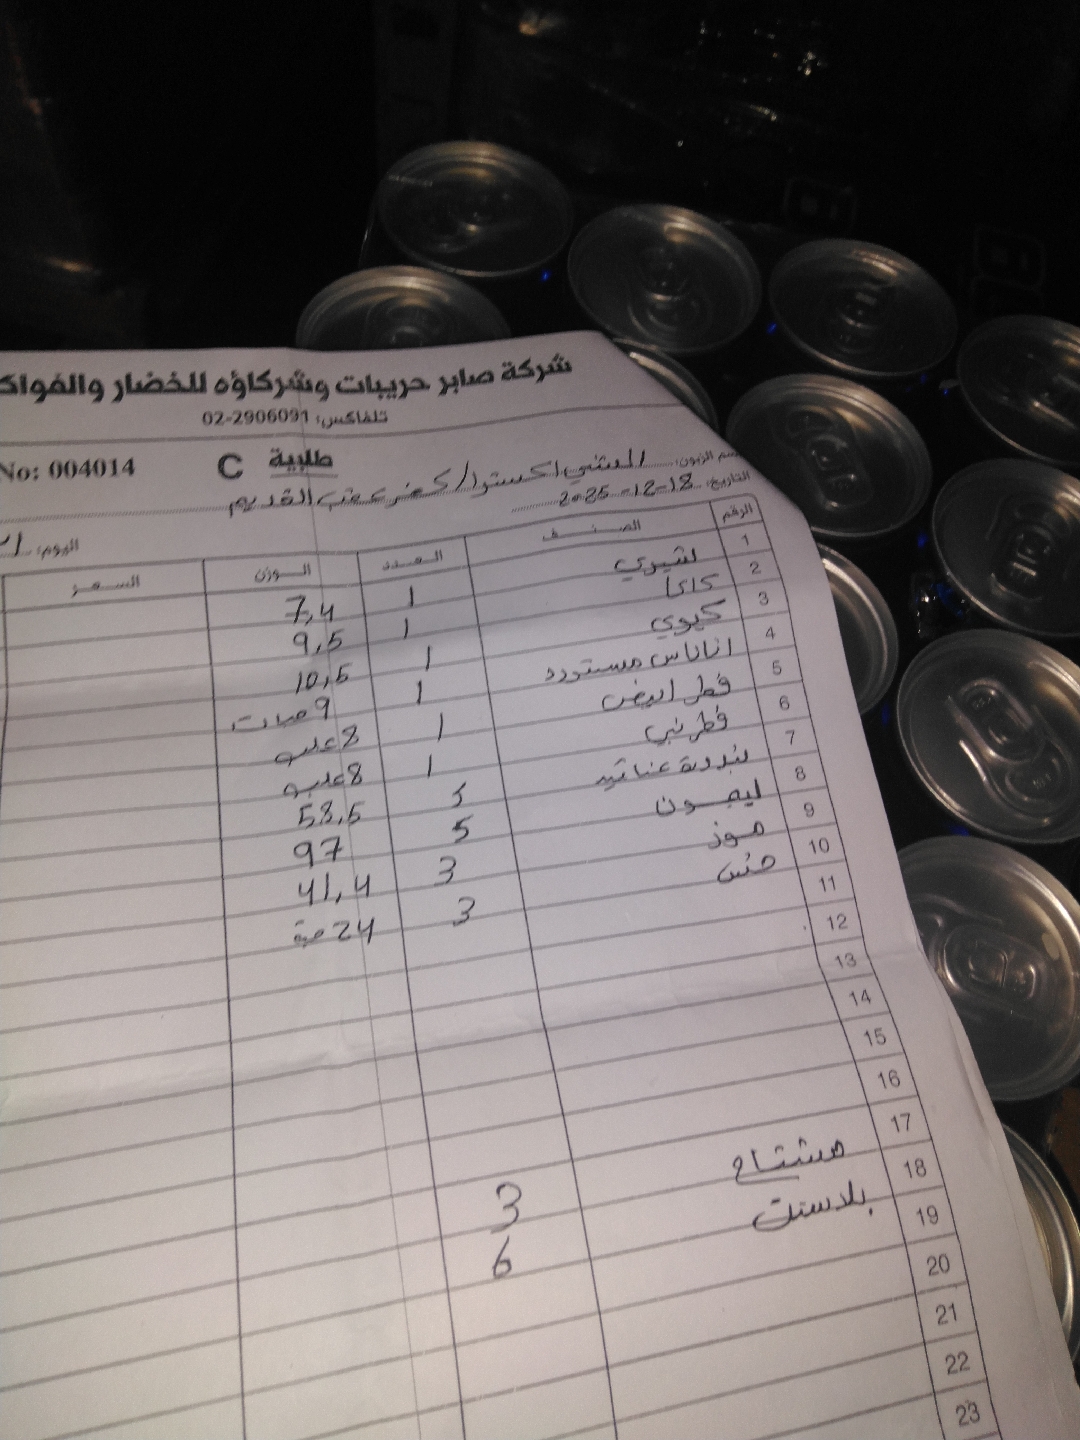 شركة صابر حريبات وشركاؤه للخضار والفواك
تلفاكس: 02-2906091
No: 004014 طلبية C
سم الزبون: المثني اكسترا/كفر عقب القديم
التاريخ: 18-12-2025
اليوم:
الرقم الصنف العدد الوزن السعر
1 لشيري 1 7,4
2 كاكا 1 9,5
3 كيوي 1 10,5
4 اناناس مستورد 1 9 حبات
5 فطر ابيض 1 8 علب
6 فطر بني 1 8 علب
7 بندورة عناقيد 58,5
8 ليمون 5 97
9 موز 3 41,4
10 خس 3 24 حبة
11
12
13
14
15
16
17
18 مشتاح 3
19 بلاستك 6
20
21
22
23